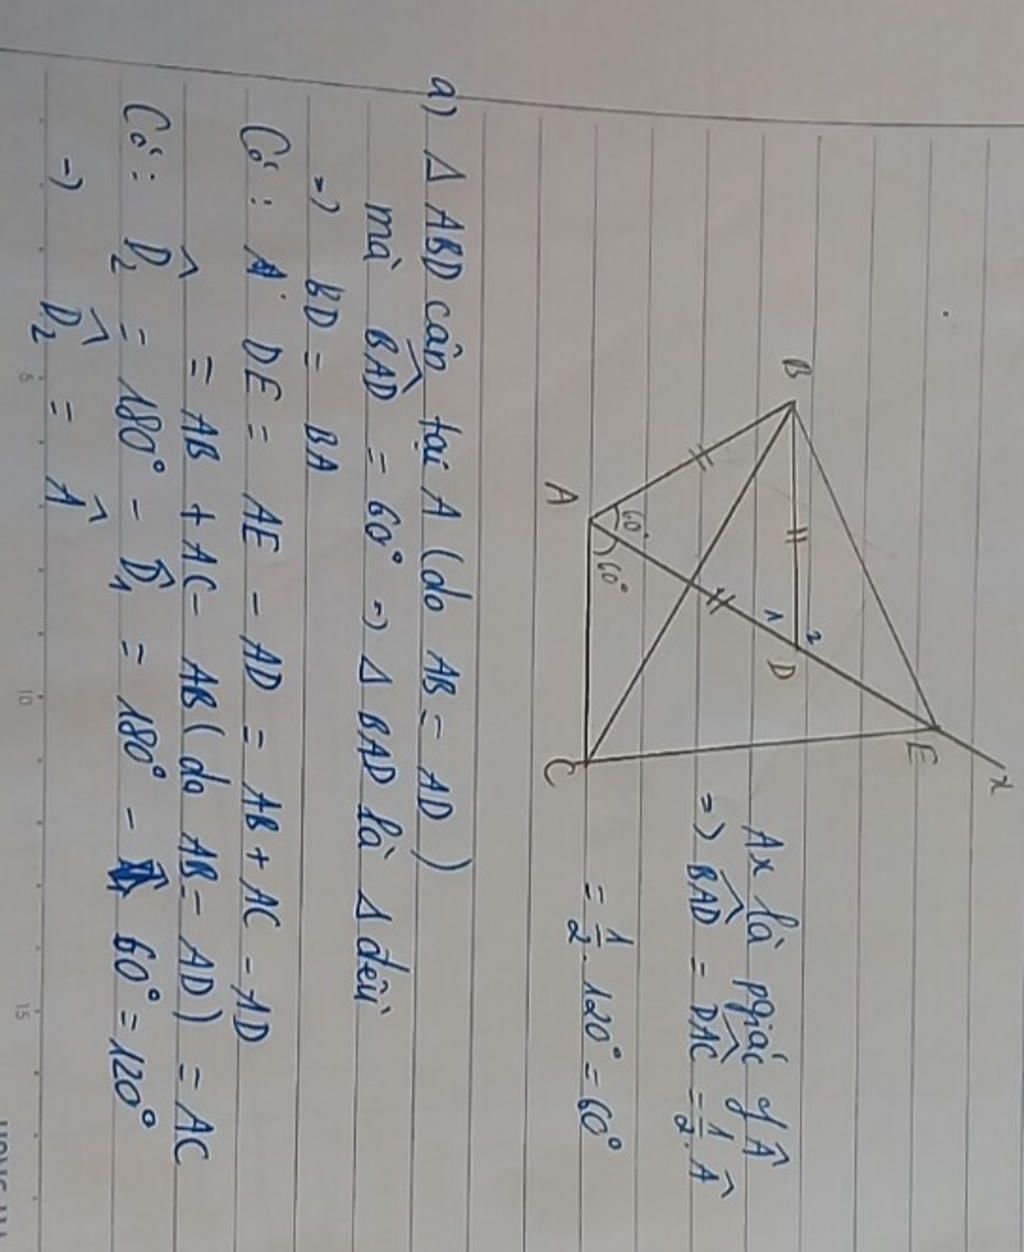 B
A
60°
60°
1
2
D
C
E
x
Ax là pgiác of Â
=> BAD^ = DAC^ = 1/2 . Â
= 1/2 . 120° = 60°
a) Δ ABD cân tại A (do AB = AD)
mà BAD^ = 60° => Δ BAD là Δ đều
=> BD = BA
Có : DE = AE - AD = AB + AC - AD
= AB + AC - AB (do AB = AD) = AC
Có : D̂2 = 180° - D̂1 = 180° - 60° = 120°
=> D̂2 = Â
5
10
15